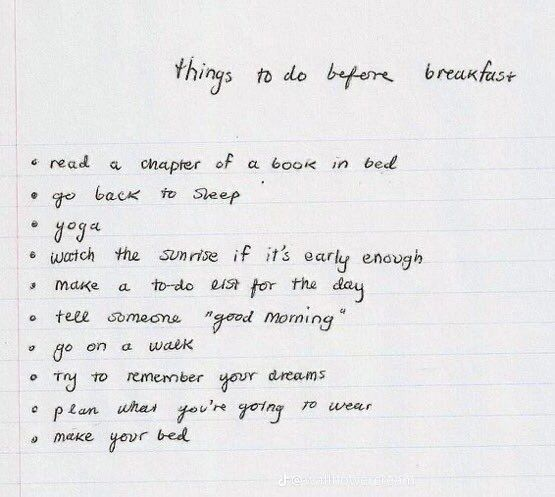 things to do before breakfast
• read a chapter of a book in bed
• go back to sleep
• yoga
• watch the sunrise if it's early enough
• make a to-do list for the day
• tell someone "good morning"
• go on a walk
• try to remember your dreams
• plan what you're going to wear
• make your bed